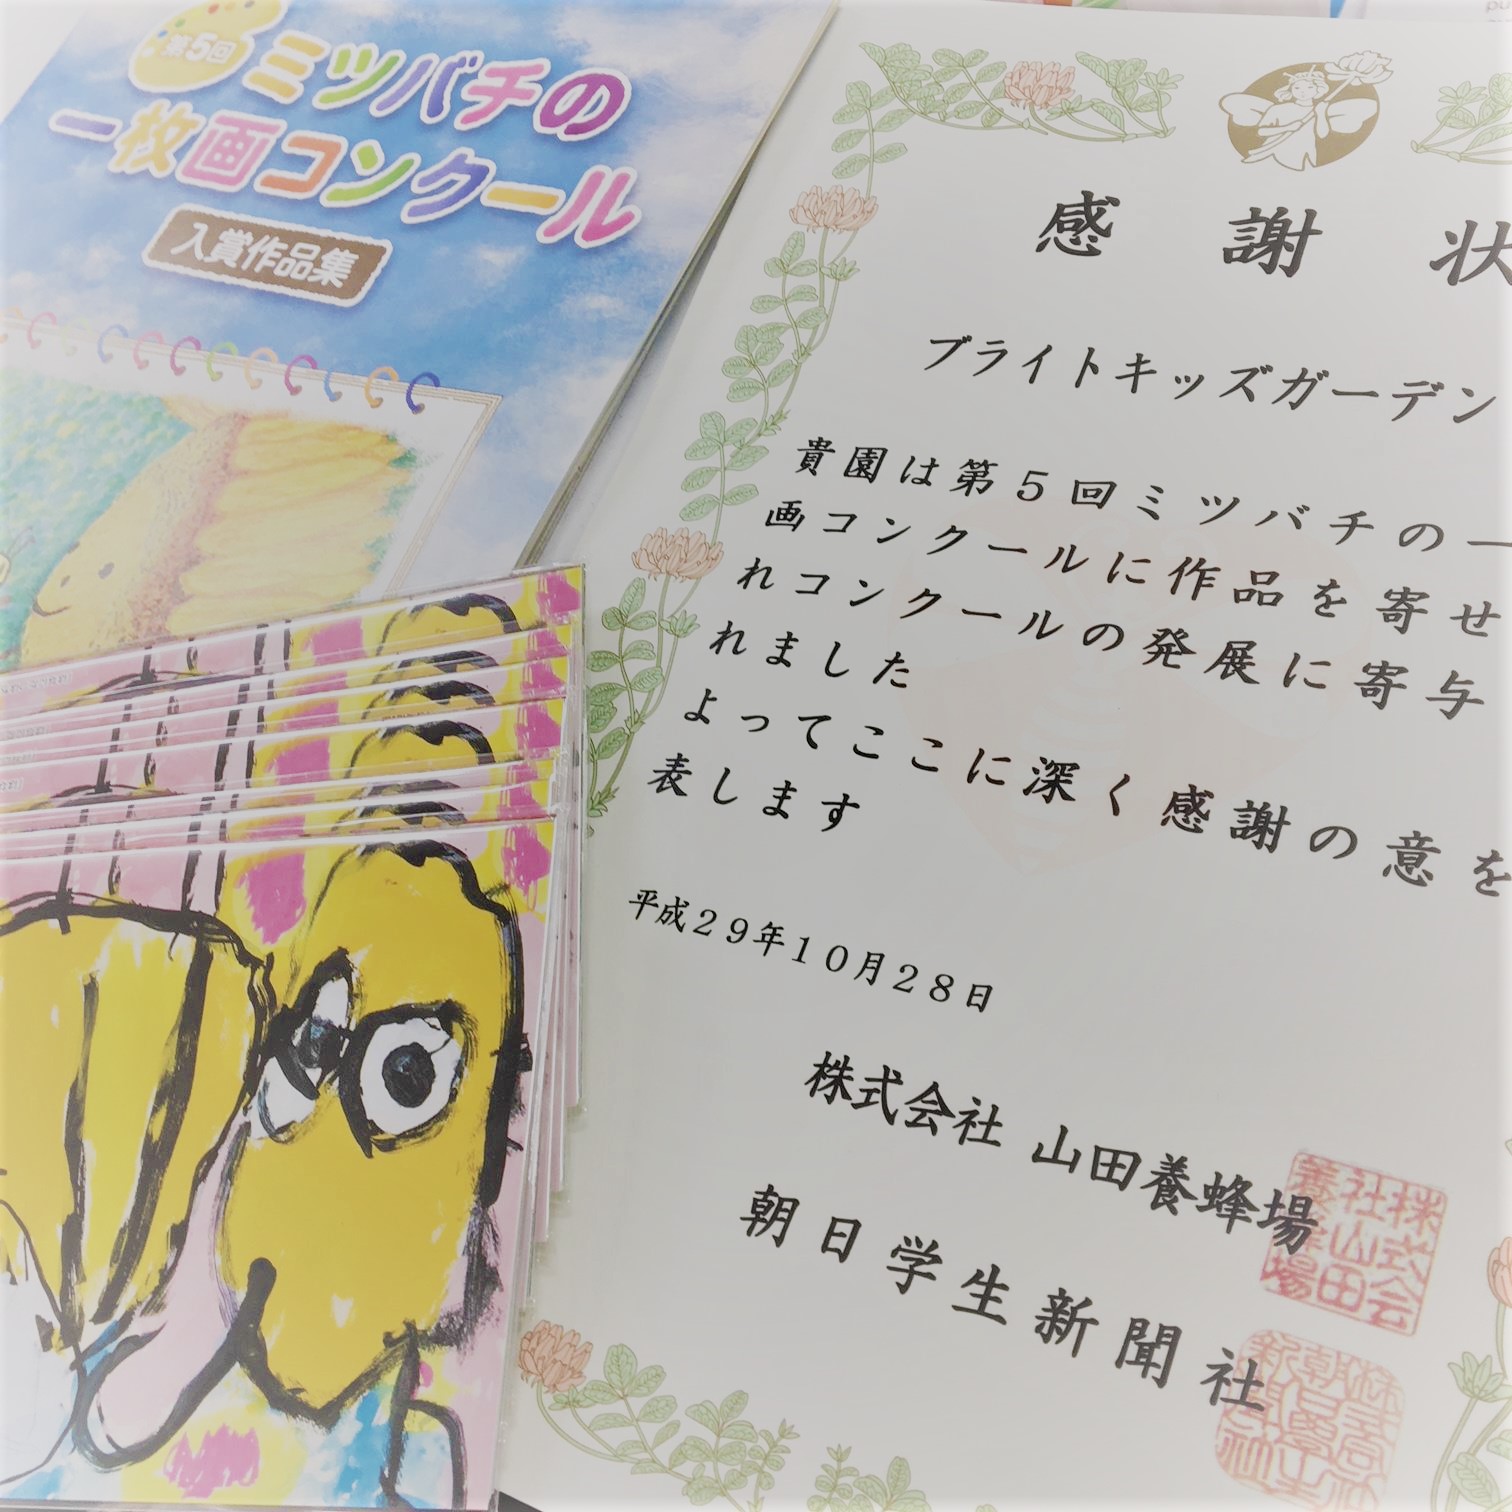 第5回
ミツバチの
一枚画コンクール
入賞作品集
感謝状
ブライトキッズガーデン
貴園は第５回ミツバチの一
画コンクールに作品を寄せ
れコンクールの発展に寄与
れました
よってここに深く感謝の意を
表します
平成２９年１０月２８日
株式会社 山田養蜂場
株式会
社山田
養蜂場
朝日学生新聞社